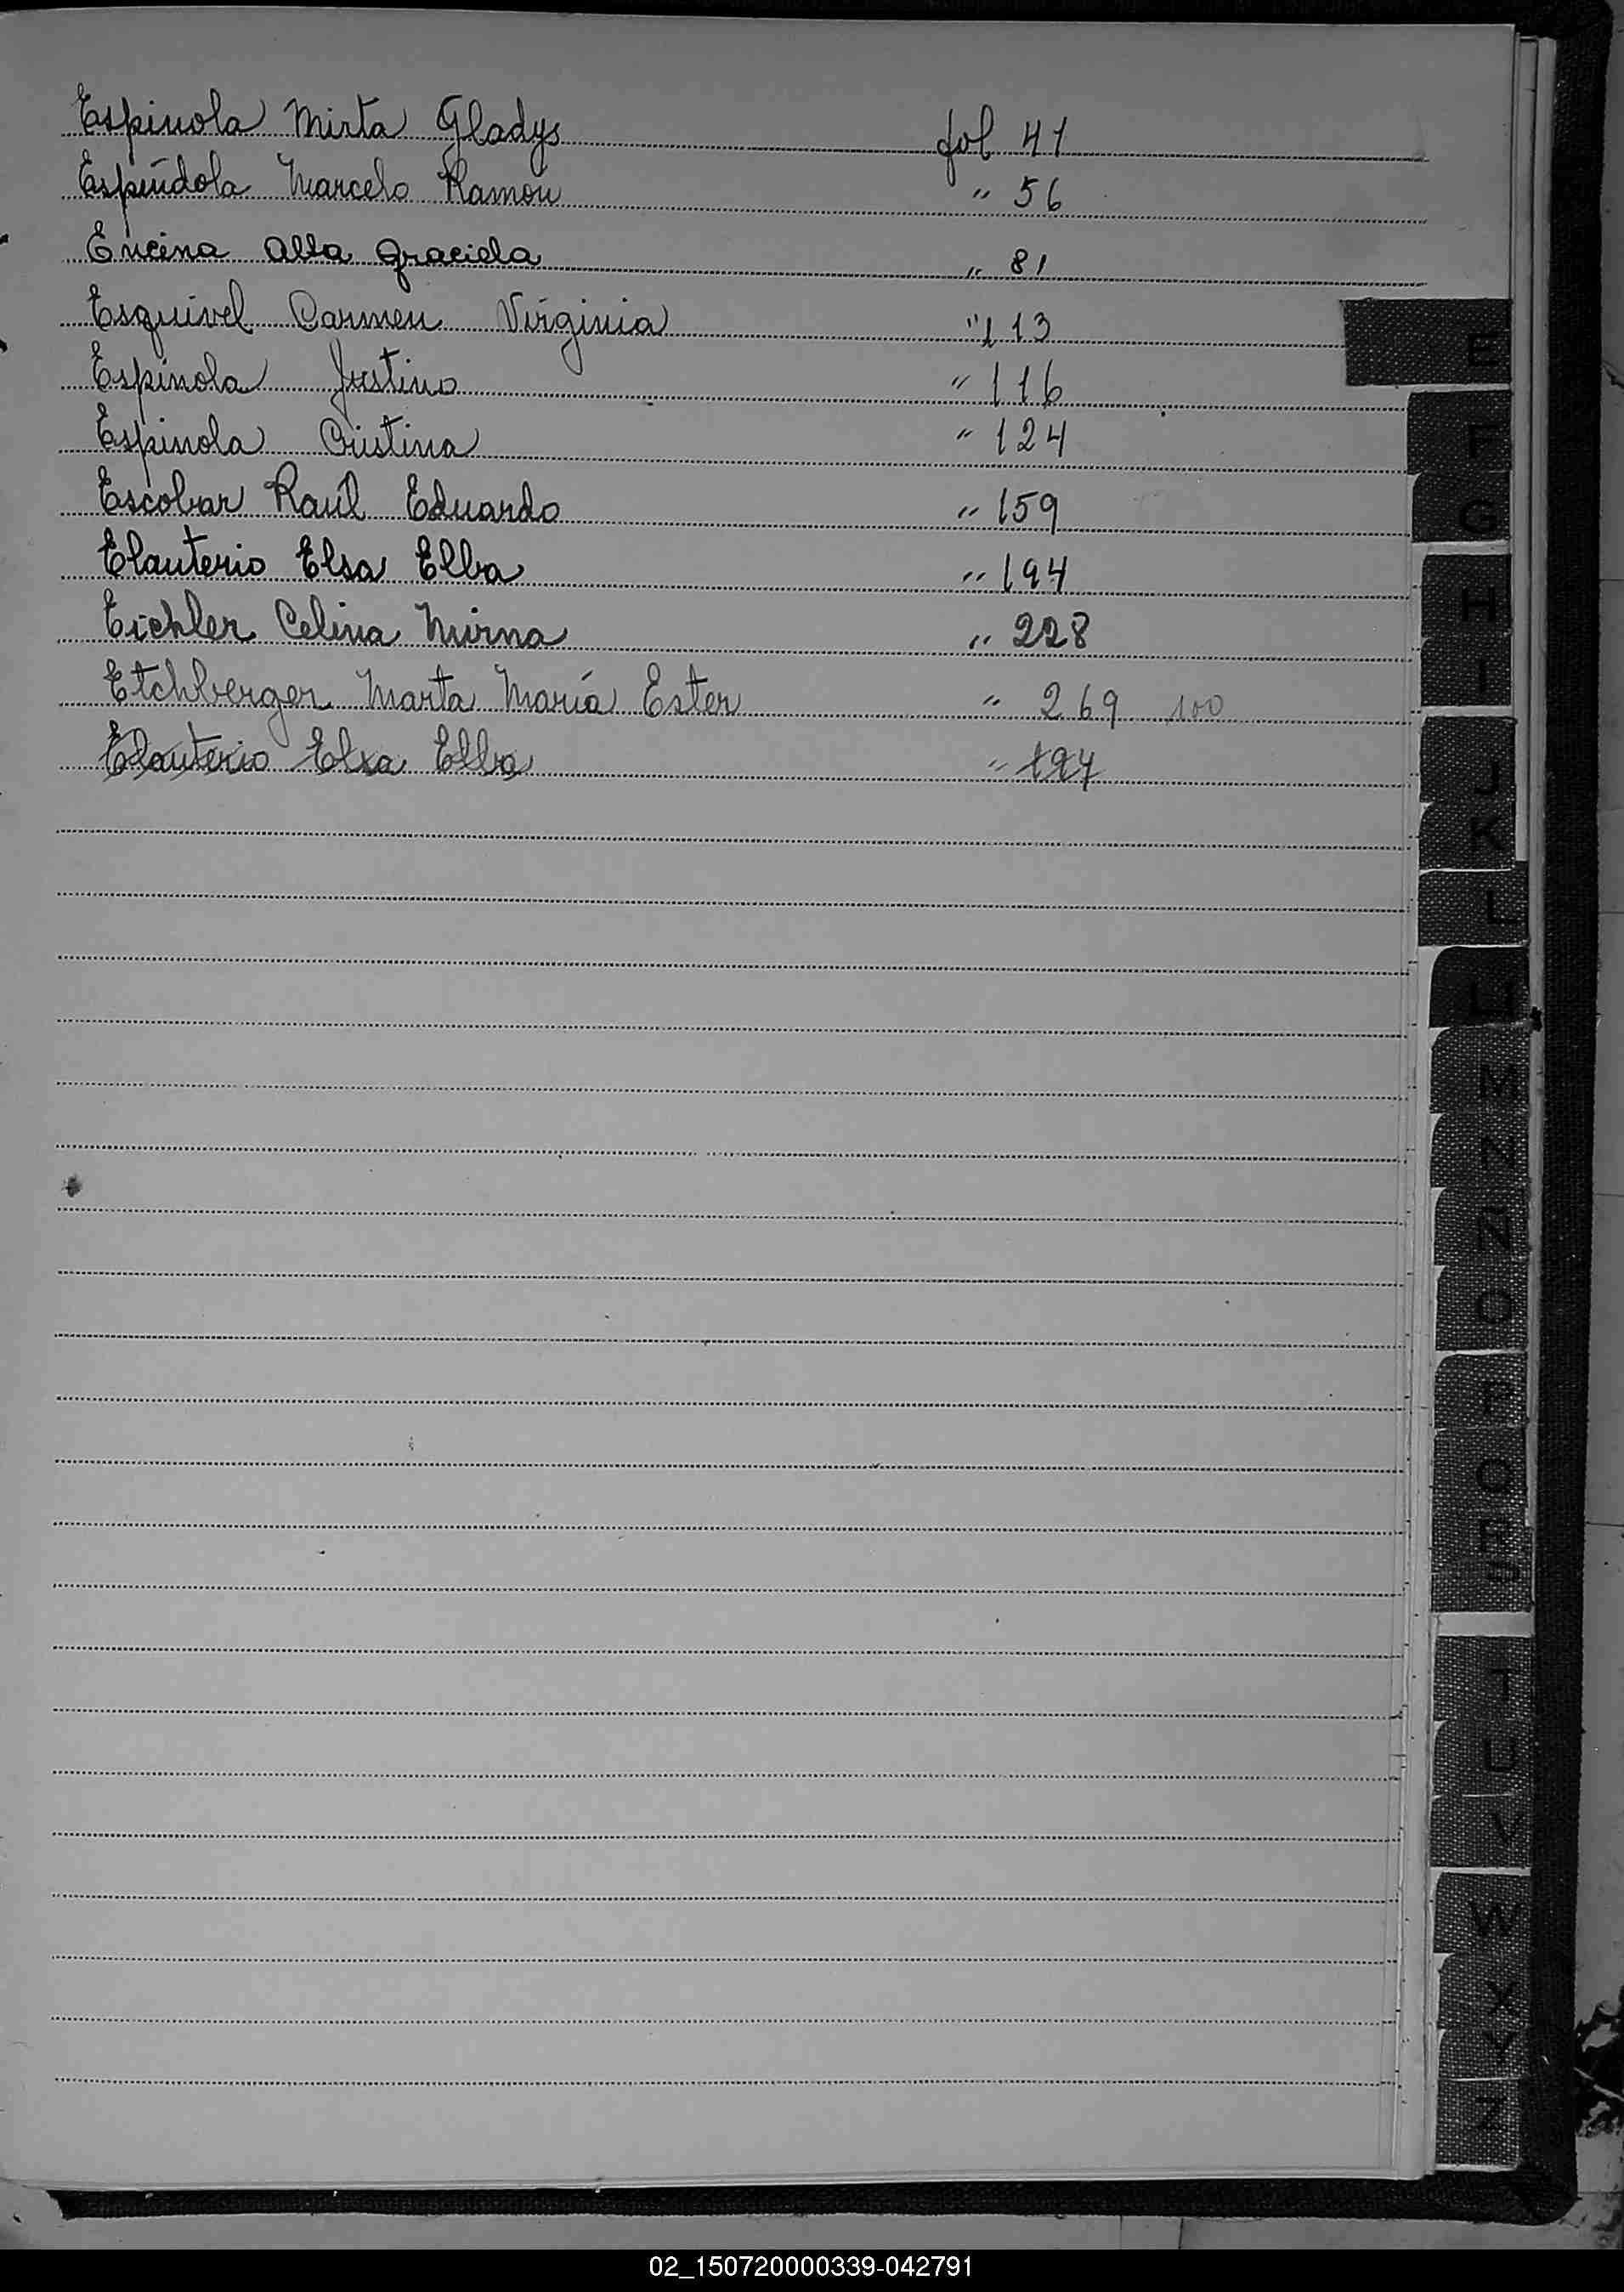 Espinola Mirta Gladys fol 41
Espíndola Marcelo Ramon " 56
Encina Alba Graciela " 81
Esquivel Carmen Virginia " 113
Espinola Justino " 116
Espinola Cristina " 124
Escobar Raúl Eduardo " 159
Elauterio Elsa Elba " 194
Eichler Celina Mirna " 228
Etchberger Marta María Ester " 269 100
Elauterio Elsa Elba " 194
E
F
G
H
I
J
K
L
Ll
M
N
Ñ
O
P
Q
R
S
T
U
V
W
X
Y
Z
02_150720000339-042791